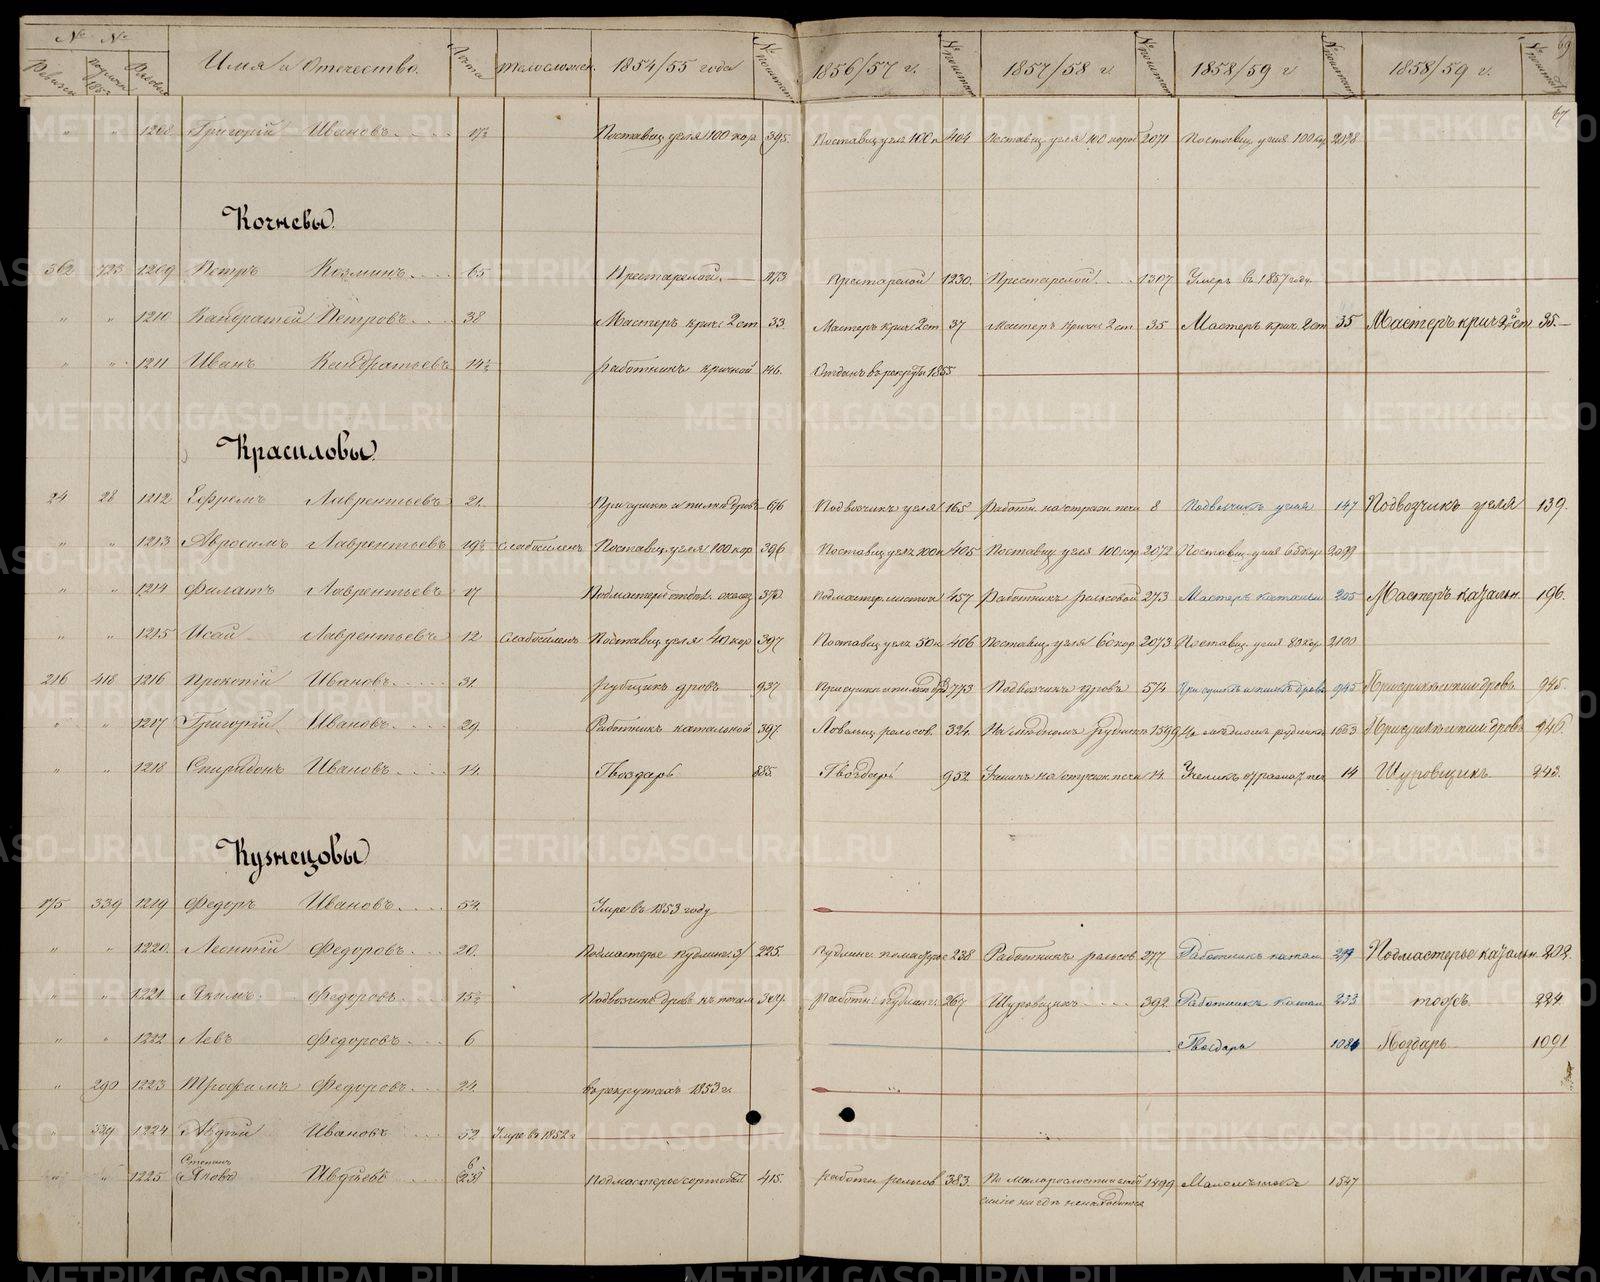 № № Имя и Отечество. Лета Телосложен. 1854/55 года 1856/57 г. 1857/58 г. 1858/59 г 1858/59 г. 69
67
" " 1208 Григорій Ивановъ 17½ Поставщ. угля 100 кор 395. Поставщ угля 100 к 404 Поставщ. угля 100 короб 2071 Поставщ. угля 100 кор 2098
Кочневы.
362 723 1209 Петръ Козминъ 65 Престарелой. 1173 Престарелой 1230. Престарелой 1307 Умеръ въ 1857 году.
" " 1210 Кандратей Петровъ 38 Мастеръ крич. 2 ст 33 Мастеръ крич 2 ст 37 Мастеръ кричн 2 ст. 35 Мастеръ крич. 2 ст 35 Мастеръ крич 2й ст 35.
" " 1211 Иванъ Кандратьевъ 14½ Работникъ кричной 146. Отданъ въ рекруты 1855
Красиловы.
24 28 1212 Ефремъ Лаврентьевъ 21. При сушке и пилке дровъ 676 Подвозчикъ угля 165 Работн. на отраж. печи 8 Подвозчикъ угля 147 Подвозчикъ угля 139.
" " 1213 Абросимъ Лаврентьевъ 19½ Слабосиленъ Поставщ. угля 100 кор 396 Поставщ угля 100 к 405 Поставщ угля 100 кор 2072 Поставщ. угля 65 кор 2099
" " 1214 Филатъ Лаврентьевъ 17 Подмастерй 370. Подмастер. листов 457 Работникъ рельсовой 273 Мастеръ катальн 205 Мастеръ катальн. 196.
" " 1215 Исай Лаврентьевъ 12 Слабосиленъ Поставщ. угля 40 кор 397 Поставщ угля 50 к 406 Поставщ. угля 60 кор 2073 Поставщ. угля 80 кор 2100
216 418 1216 Прокопій Ивановъ 31. Рубщикъ дровъ 937 При сушке и пилке др 773 Подвозчикъ дровъ 574 При сушке и пилке дровъ 945 При сушке и пилке дровъ 945.
" " 1217 Григорій Ивановъ 29. Работникъ катальной 397. Ловельщ. рельсов. 324. На медномъ рудникѣ 1599 На медномъ рудникѣ 1663 При сушке и пилке дровъ 946.
" " 1218 Спиридонъ Ивановъ 14. Гвоздарь 885. Гвоздарь 952 Ученикъ на отраж. печи 14. Ученикъ отражат. печ 14 Шуровщикъ 243.
Кузнецовы.
175 339 1219 Федоръ Ивановъ 54. Умре въ 1853 году
" " 1220. Леонтій Федоровъ 20. Подмастерье пудлинг. 3/ 225. Пудлинг. подмастерье 238 Работникъ рельсов. 277 Работникъ катал 219 Подмастерье катальн. 202.
" " 1221 Якимъ Федоровъ 15½ Подвозчикъ дровъ къ печам 304. Работн. пудлинг. 267 Шуровщикъ 392. Работникъ катал 233 тожъ 224.
" " 1222 Левъ Федоровъ 6 Гвоздарь 1086 Гвоздарь 1091
" 290 1223 Трофимъ Федоровъ 24. въ рекрутахъ 1853 г.
" 339 1224 Авдѣй Ивановъ 52 Умре въ 1852 г
" " 1225 Степанъ Яковъ Авдѣевъ 6 23½ Подмастерье сортовой 415. Работн рельсов 383. По малорослости и слабосилію нигдѣ ненаходится 1499 Малолѣтокъ 1547